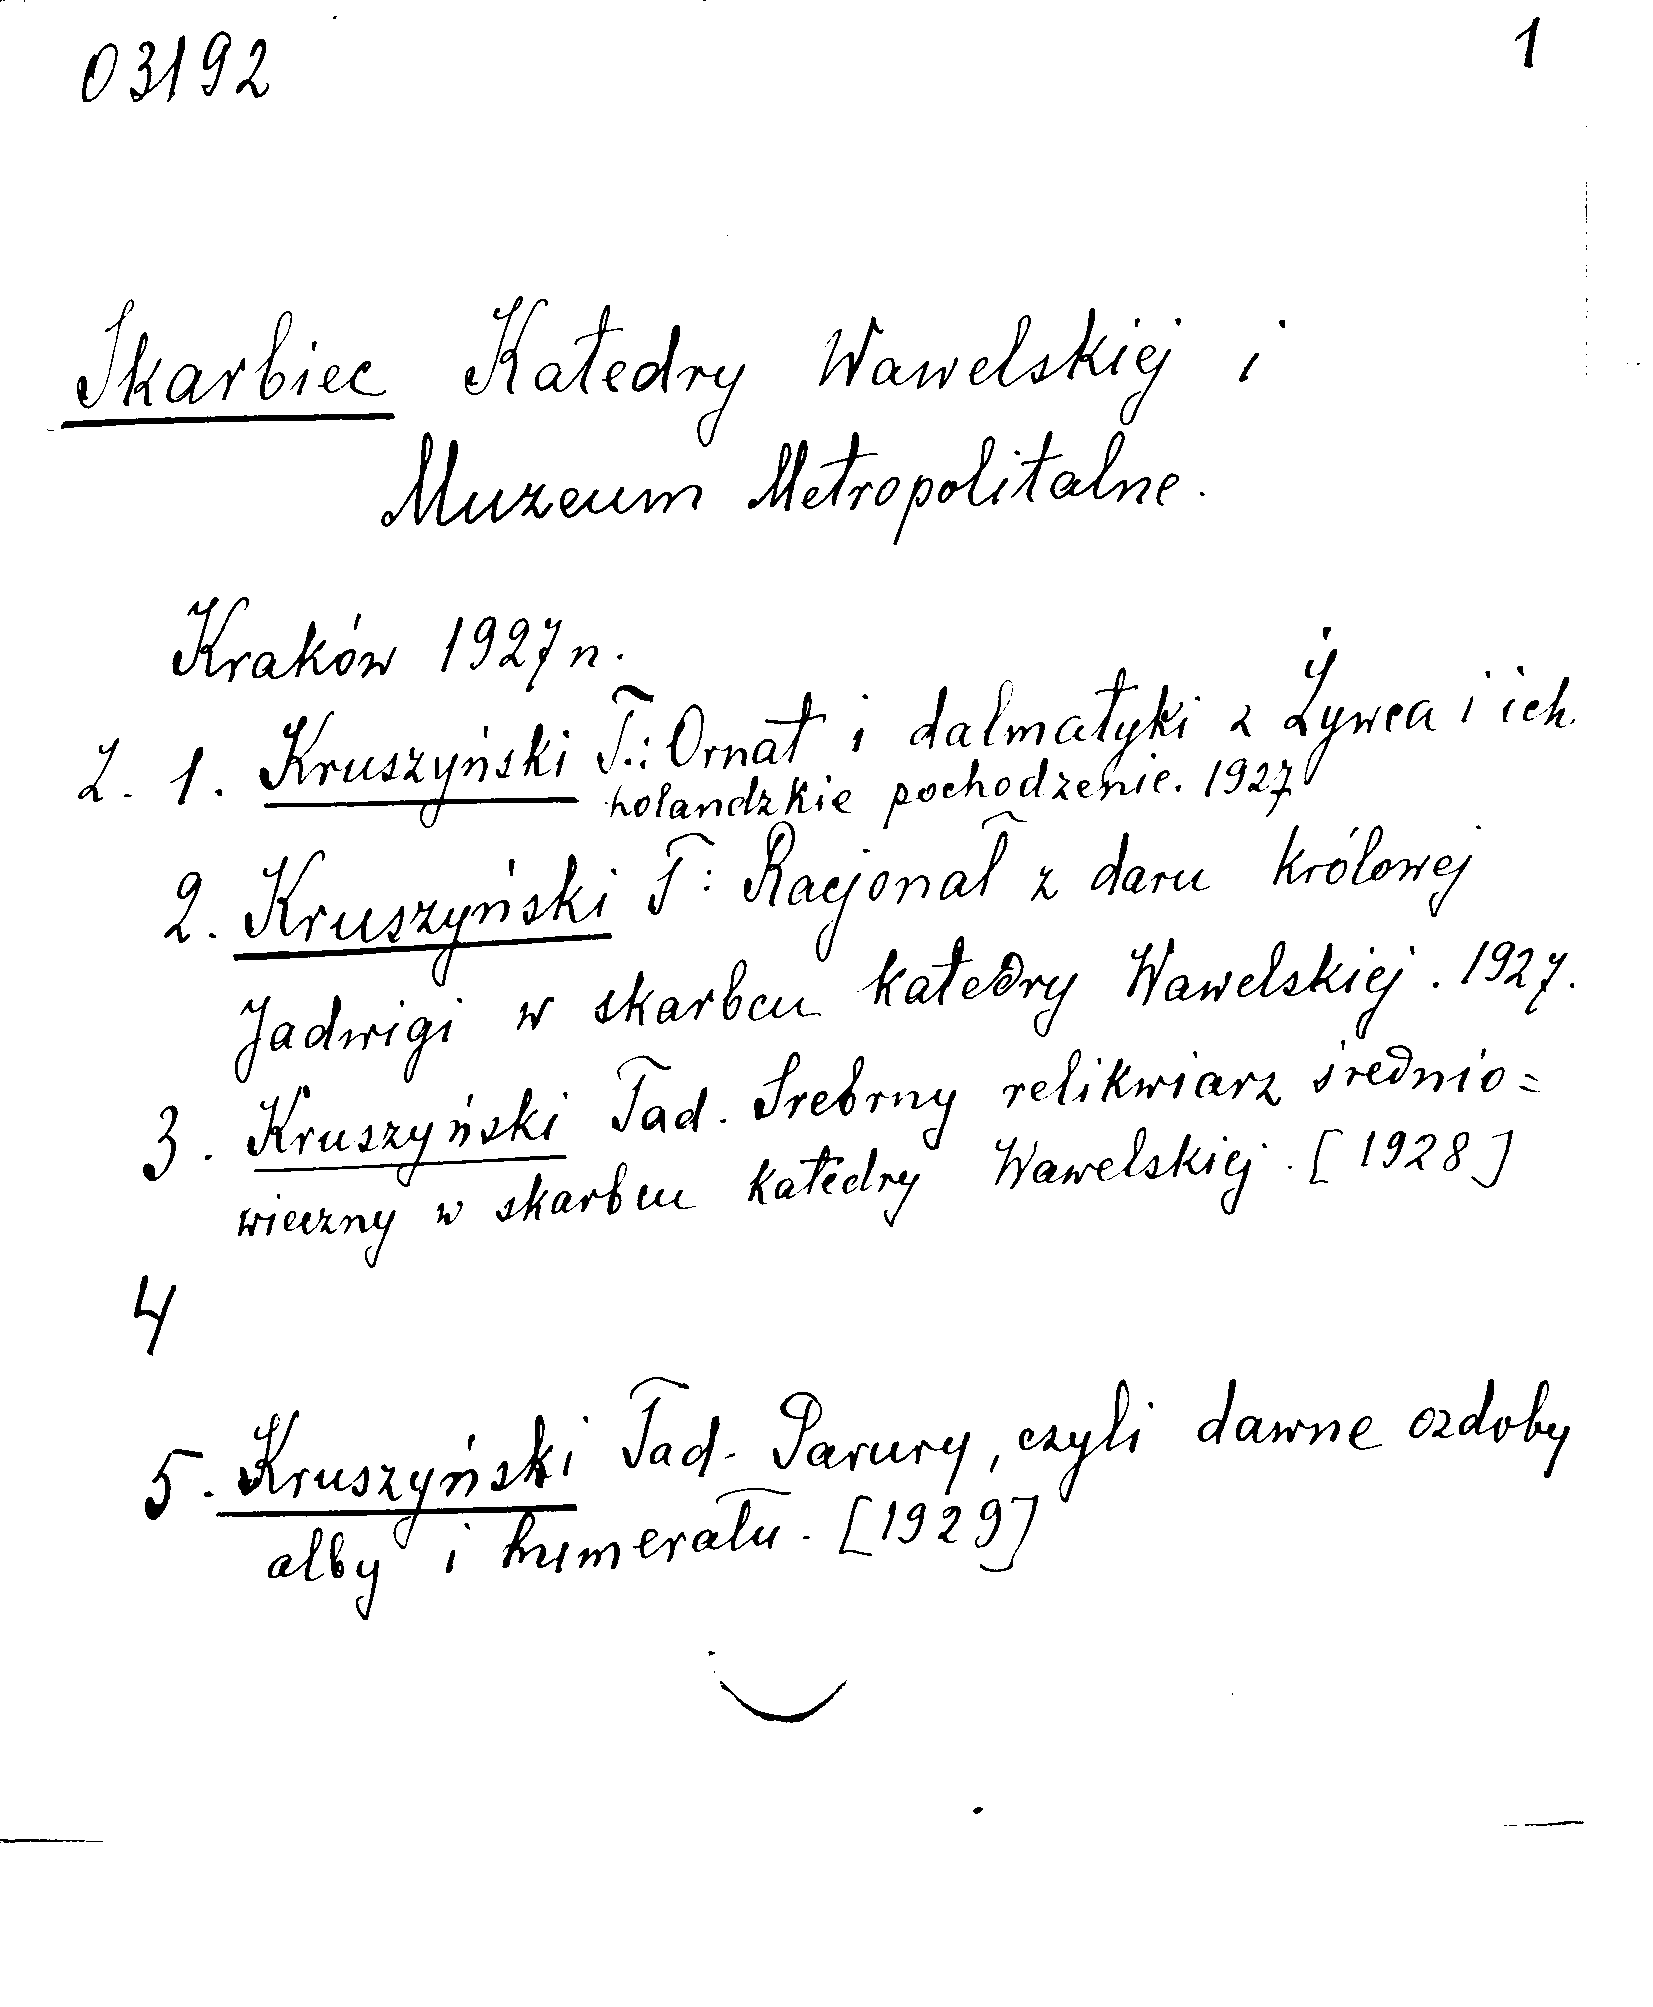 03192
1
Skarbiec Katedry Wawelskiej i
Muzeum Metropolitalne.
Kraków 1927 n.
Z. 1. Kruszyński T.: Ornat i dalmatyki z Żywca i ich
holandzkie pochodzenie. 1927
2. Kruszyński T: Racjonał z daru królowej
Jadwigi w skarbcu katedry Wawelskiej. 1927.
3. Kruszyński Tad. Srebrny relikwiarz średnio=
wieczny w skarbcu katedry Wawelskiej. [1928]
4
5. Kruszyński Tad. Parury, czyli dawne ozdoby
alby i humerału. [1929]